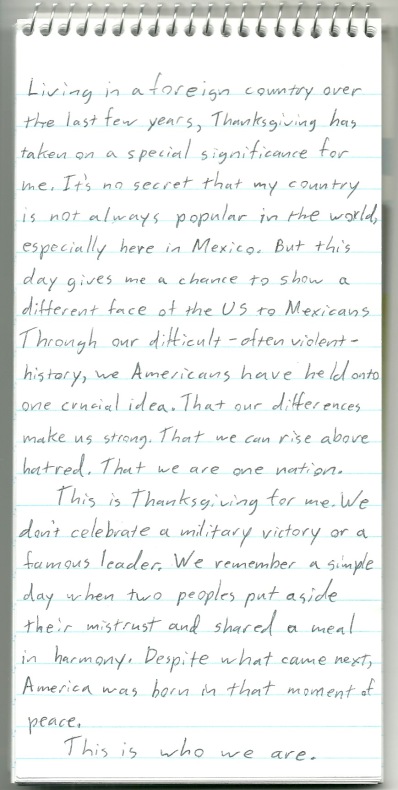 Living in a foreign country over
the last few years, Thanksgiving has
taken on a special significance for
me. It's no secret that my country
is not always popular in the world,
especially here in Mexico. But this
day gives me a chance to show a
different face of the US to Mexicans
Through our difficult - often violent -
history, we Americans have held onto
one crucial idea. That our differences
make us strong. That we can rise above
hatred. That we are one nation.
This is Thanksgiving for me. We
don't celebrate a military victory or a
famous leader. We remember a simple
day when two peoples put aside
their mistrust and shared a meal
in harmony. Despite what came next,
America was born in that moment of
peace.
This is who we are.